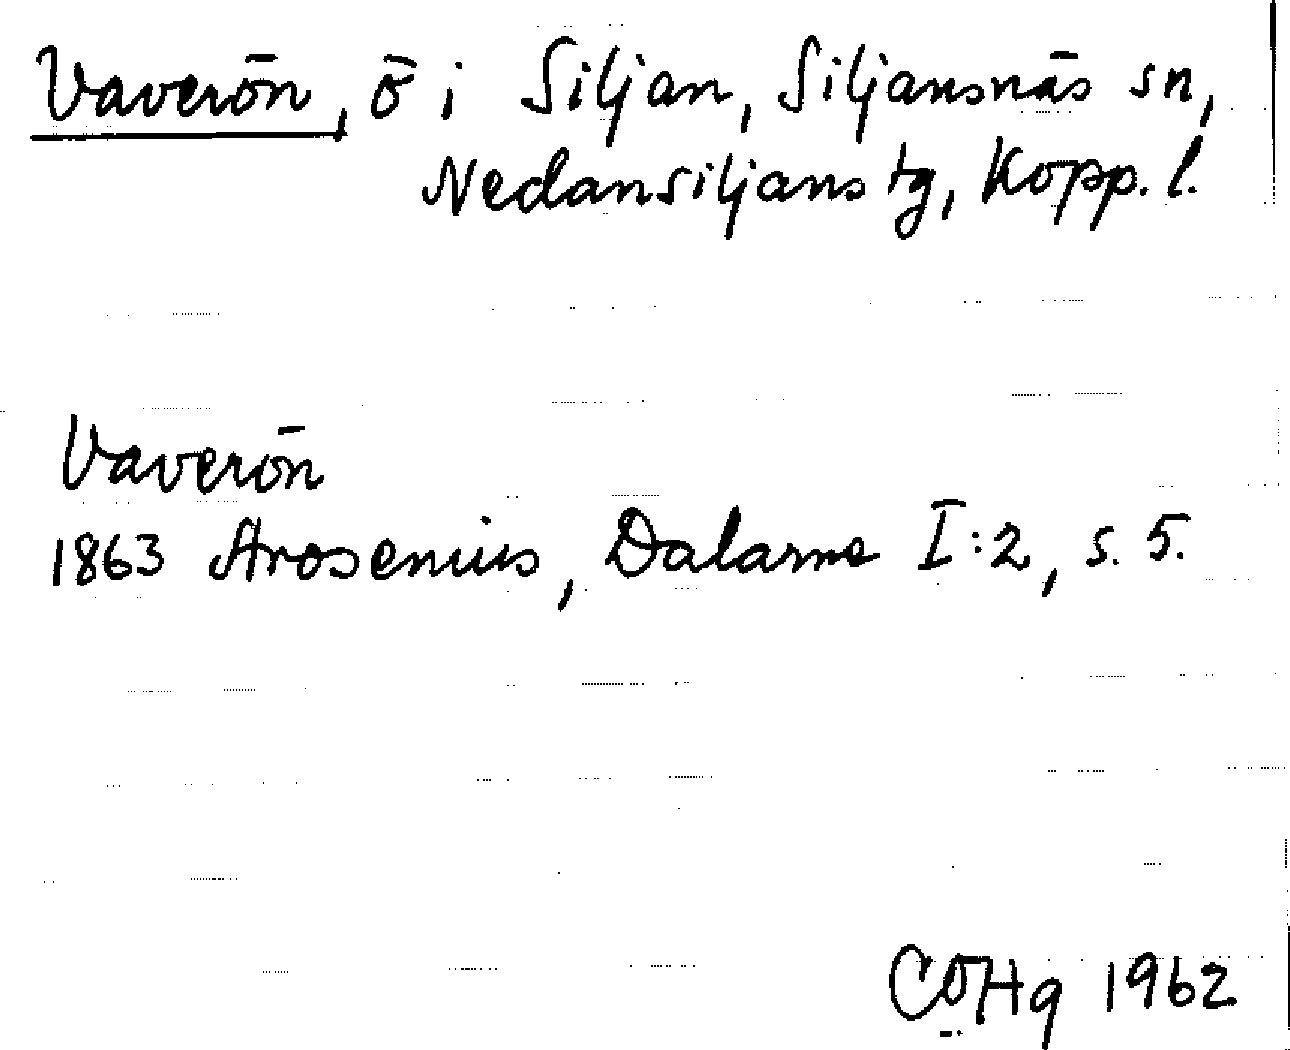 Vaverön, ö i Siljan, Siljansnäs sn,
Nedansiljans tg, Kopp. l.
Vaverön
1863 Arosenius, Dalarne I:2, s. 5.
COHq 1962